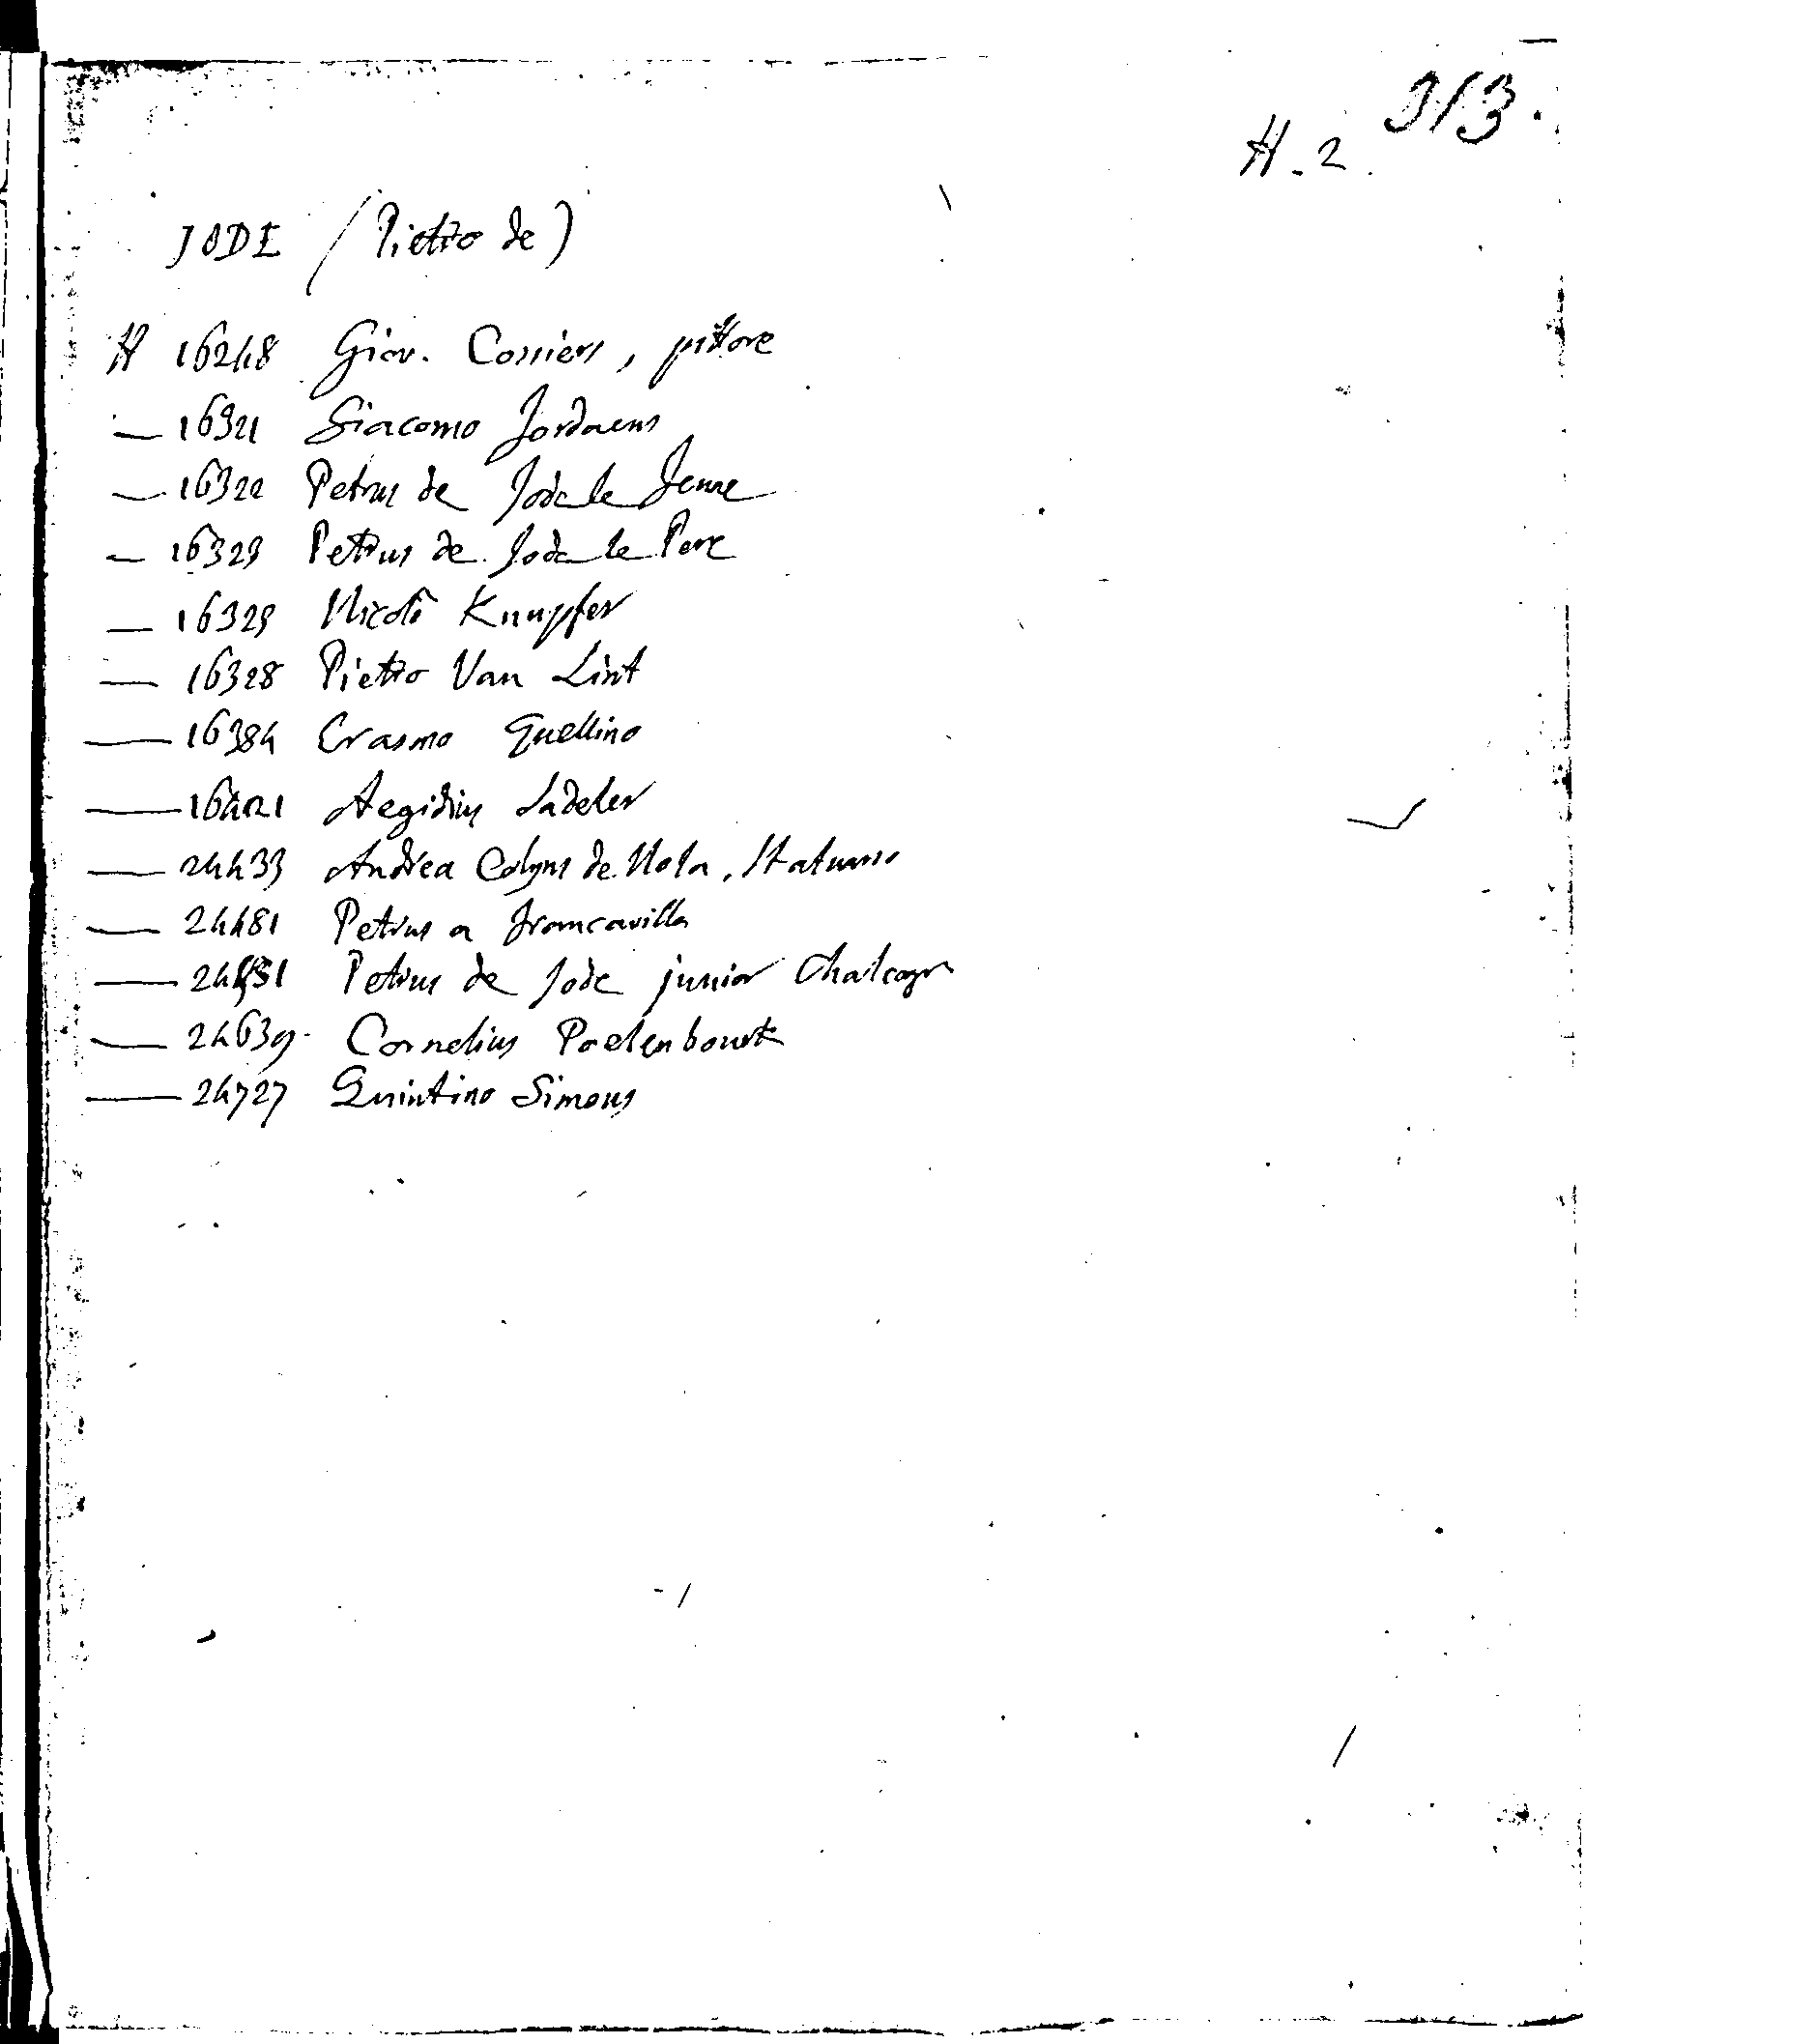 313.
H. 2.
JODE (Pietro de)
H 16248 Giov. Cossiers, pittore
— 16321 Giacomo Jordaens
— 16322 Petrus de Jode le Jeune
— 16323 Petrus de Jode le Pere
— 16323 Nicolò Knupfer
— 16328 Pietro Van Lint
— 16384 Erasmo Quellino
— Aegidius Sadeler
— 24433 Andrea Colyns de Nola, Statuario
— 24481 Petrus a Francavilla
— Petrus de Jode junior Chalcogr
— 24639 Cornelius Poelenbourk
— 24727 Quintino Simons